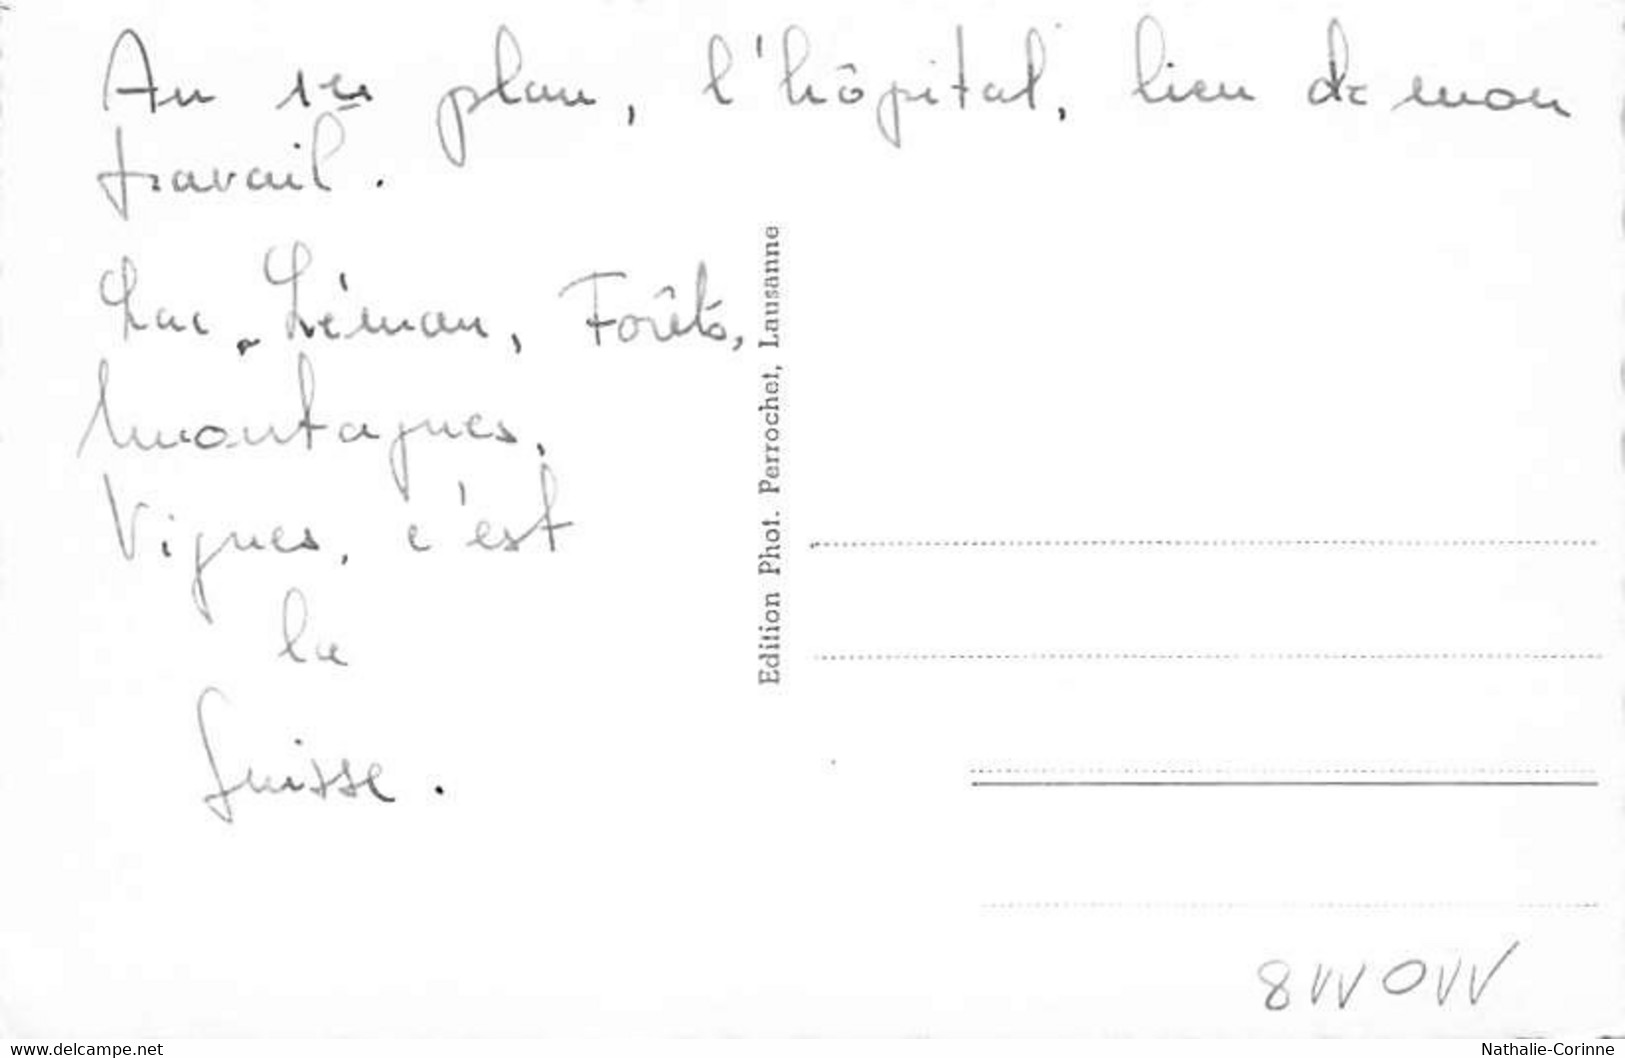 Au 1er plan, l'hôpital, lieu de mon
travail.
Lac Léman, Forêts,
montagnes,
Vignes, c'est
la
Suisse.
Edition Phot. Perrochet, Lausanne
www.delcampe.net
Nathalie-Corinne